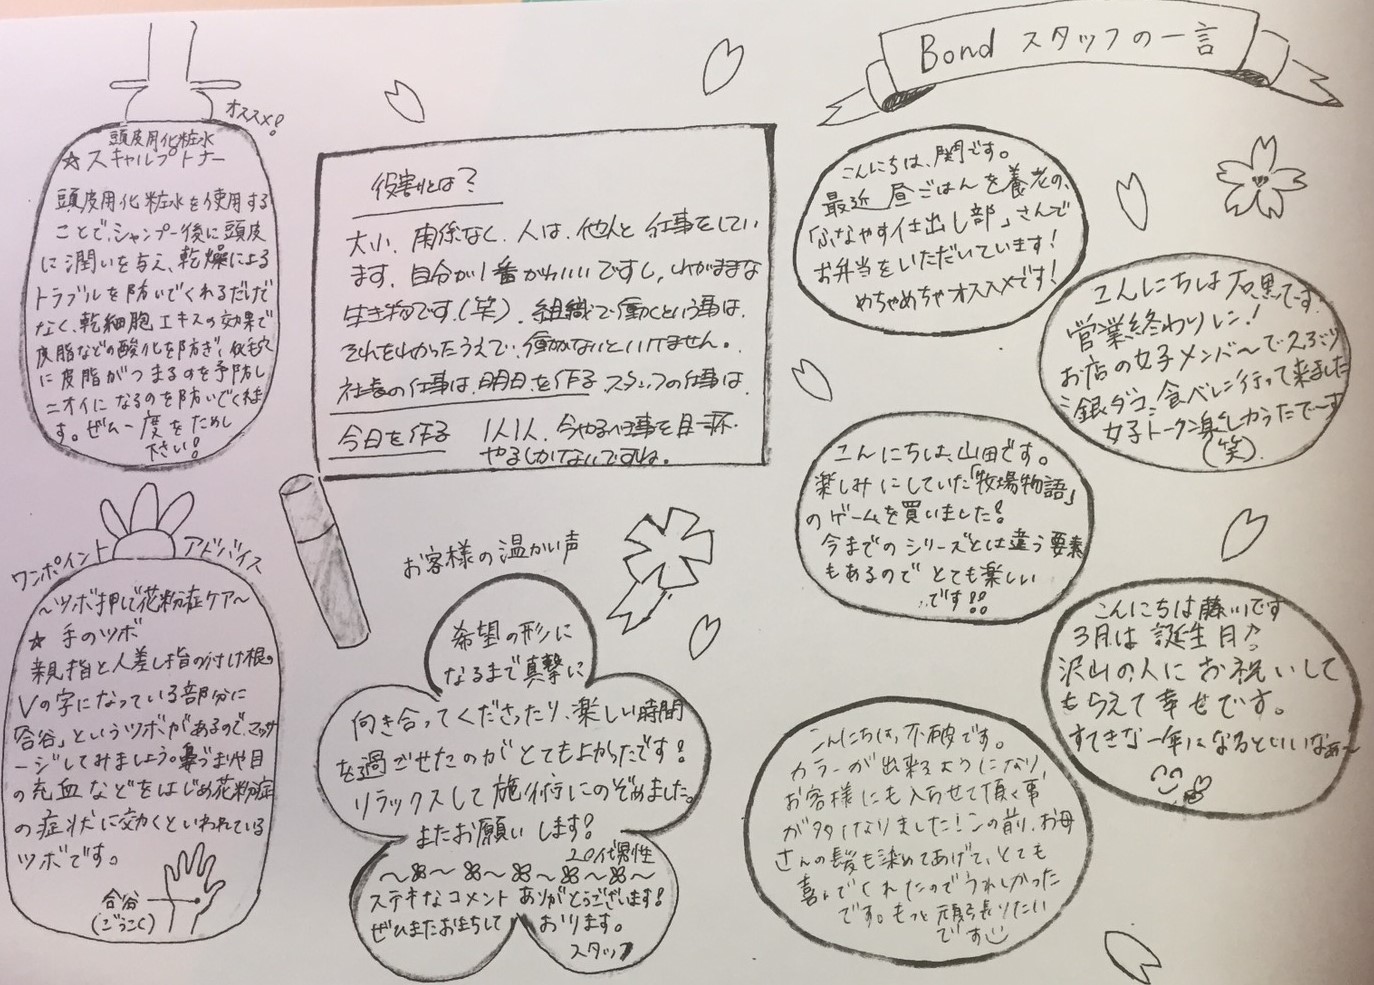 オススメ!
頭皮用化粧水
☆スキャルプトナー
頭皮用化粧水を使用する
ことで、シャンプー後に頭皮
に潤いを与え、乾燥による
トラブルを防いでくれるだけで
なく、乾細胞エキスの効果で
皮脂などの酸化を防ぎ、毛穴
に皮脂がつまるのを予防し
ニオイになるのを防いでくれま
す。ぜひ一度をためし
下さい!
ワンポイント アドバイス
〜ツボ押しで花粉症ケア〜
☆ 手のツボ
親指と人差し指の付け根の
Vの字になっている部分に
「合谷」というツボがあるので、マッサ
ージしてみましょう。鼻づまりや目
の充血などをはじめ花粉症
の症状に効くといわれている
ツボです。
合谷
(ごうこく)
役割とは?
大小、関係なく、人は、他人と仕事をしてい
ます、自分が1番かわいいですし、わがままな
生き物です。(笑) 組織で働くという事は、
それをわかったうえで、働かないといけません。
社長の仕事は、明日を作る スタッフの仕事は、
今日を作る 1人1人、今やるべき事を目一杯、
やるしかないですね。
お客様の温かい声
希望の形に
なるまで真摯に
向き合ってくださったり、楽しい時間
を過ごせたのがとてもよかったです!
リラックスして施術にのぞめました。
またお願いします!
20代男性
ステキなコメントありがとうございます!
ぜひまたお待ちして おります。
スタッフ
Bond スタッフの一言
こんにちは、関です。
最近昼ごはんを養老の、
「ふなやす仕出し部」さんで
お弁当をいただいています!
めちゃめちゃオススメです!
こんにちは石黒です!
営業終わりに!
お店の女子メンバ〜でひさびさ
銀ダコ食べに行って来ました
女子トーク楽しかったで〜す
(笑)
こんにちは、山田です。
楽しみにしていた「牧場物語」
のゲームを買いました!
今までのシリーズとは違う要素
もあるのでとても楽しい
です!!
こんにちは藤川です
3月は誕生月♪
沢山の人にお祝いして
もらえて幸せです。
すてきな一年になるといいなぁ〜
こんにちは、不破です。
カラーが出来るようになり、
お客様にも入らせて頂く事
が多くなりました!この前、お母
さんの髪も染めてあげて、とても
喜んでくれたのでうれしかった
です。もっと頑張りたい
です